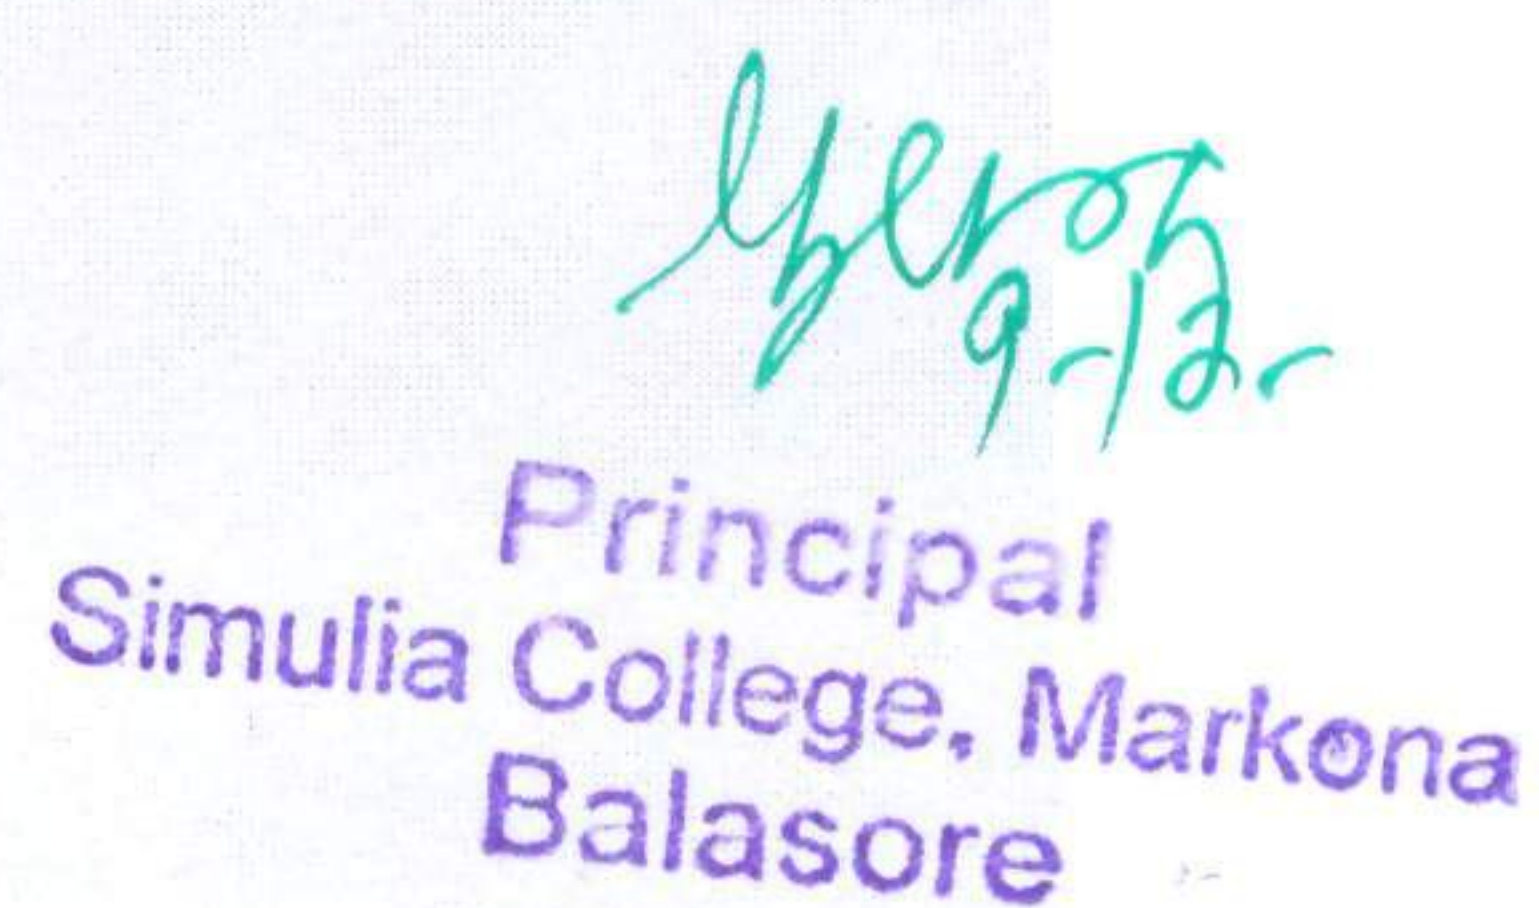 9-12-
Principal
Simulia College, Markona
Balasore